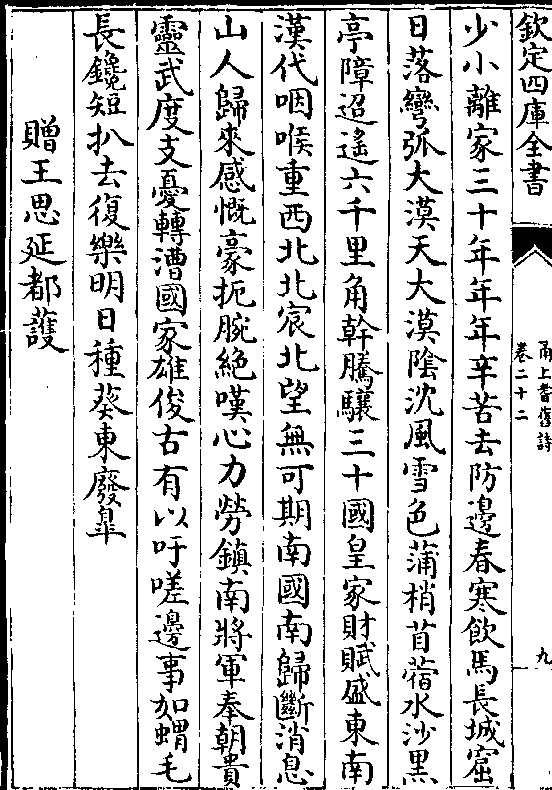 欽定四庫全書
甬上耆舊詩
卷二十二
九
少小離家三十年年年辛苦去防邊春寒飲馬長城窟
日落彎弧大漠天大漠隂沈風雪色蒲梢苜蓿水沙黒
亭障迢遙六千里角幹騰驤三十國皇家財賦盛東南
漢代咽喉重西北北宸北望無可期南國南歸斷消息
山人歸來感慨豪扼腕絶嘆心力勞鎮南將軍奉朝貴
靈武度支憂轉漕國家雄俊古有以吁嗟邊事如蝟毛
長鑱短扒去復樂明日種葵東廢臯
贈王思延都䕶